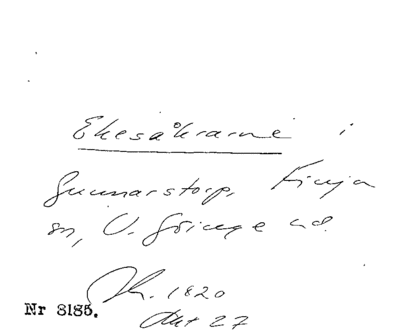 Ekesåkrarne i
Gunnarstorp, Finja
sn, V. Göinge hd.
Sk. 1820
Akt 27
Nr 8185.